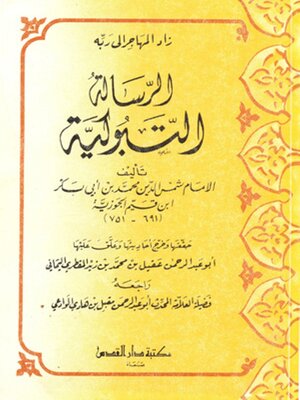 زاد المهاجر إلى ربه
الرسالة
التبوكية
تأليف
الإمام شمس الدين محمد بن أبي بكر
ابن قيم الجوزية
(٦٩١ - ٧٥١)
حققها وخرج أحاديثها وعلق عليها
أبو عبد الرحمن عقيل بن محمد بن زيد المقطري اليماني
راجعه
فضيلة العلامة المحدث أبو عبد الرحمن مقبل بن هادي الوادعي
مكتبة دار القدس
صنعاء